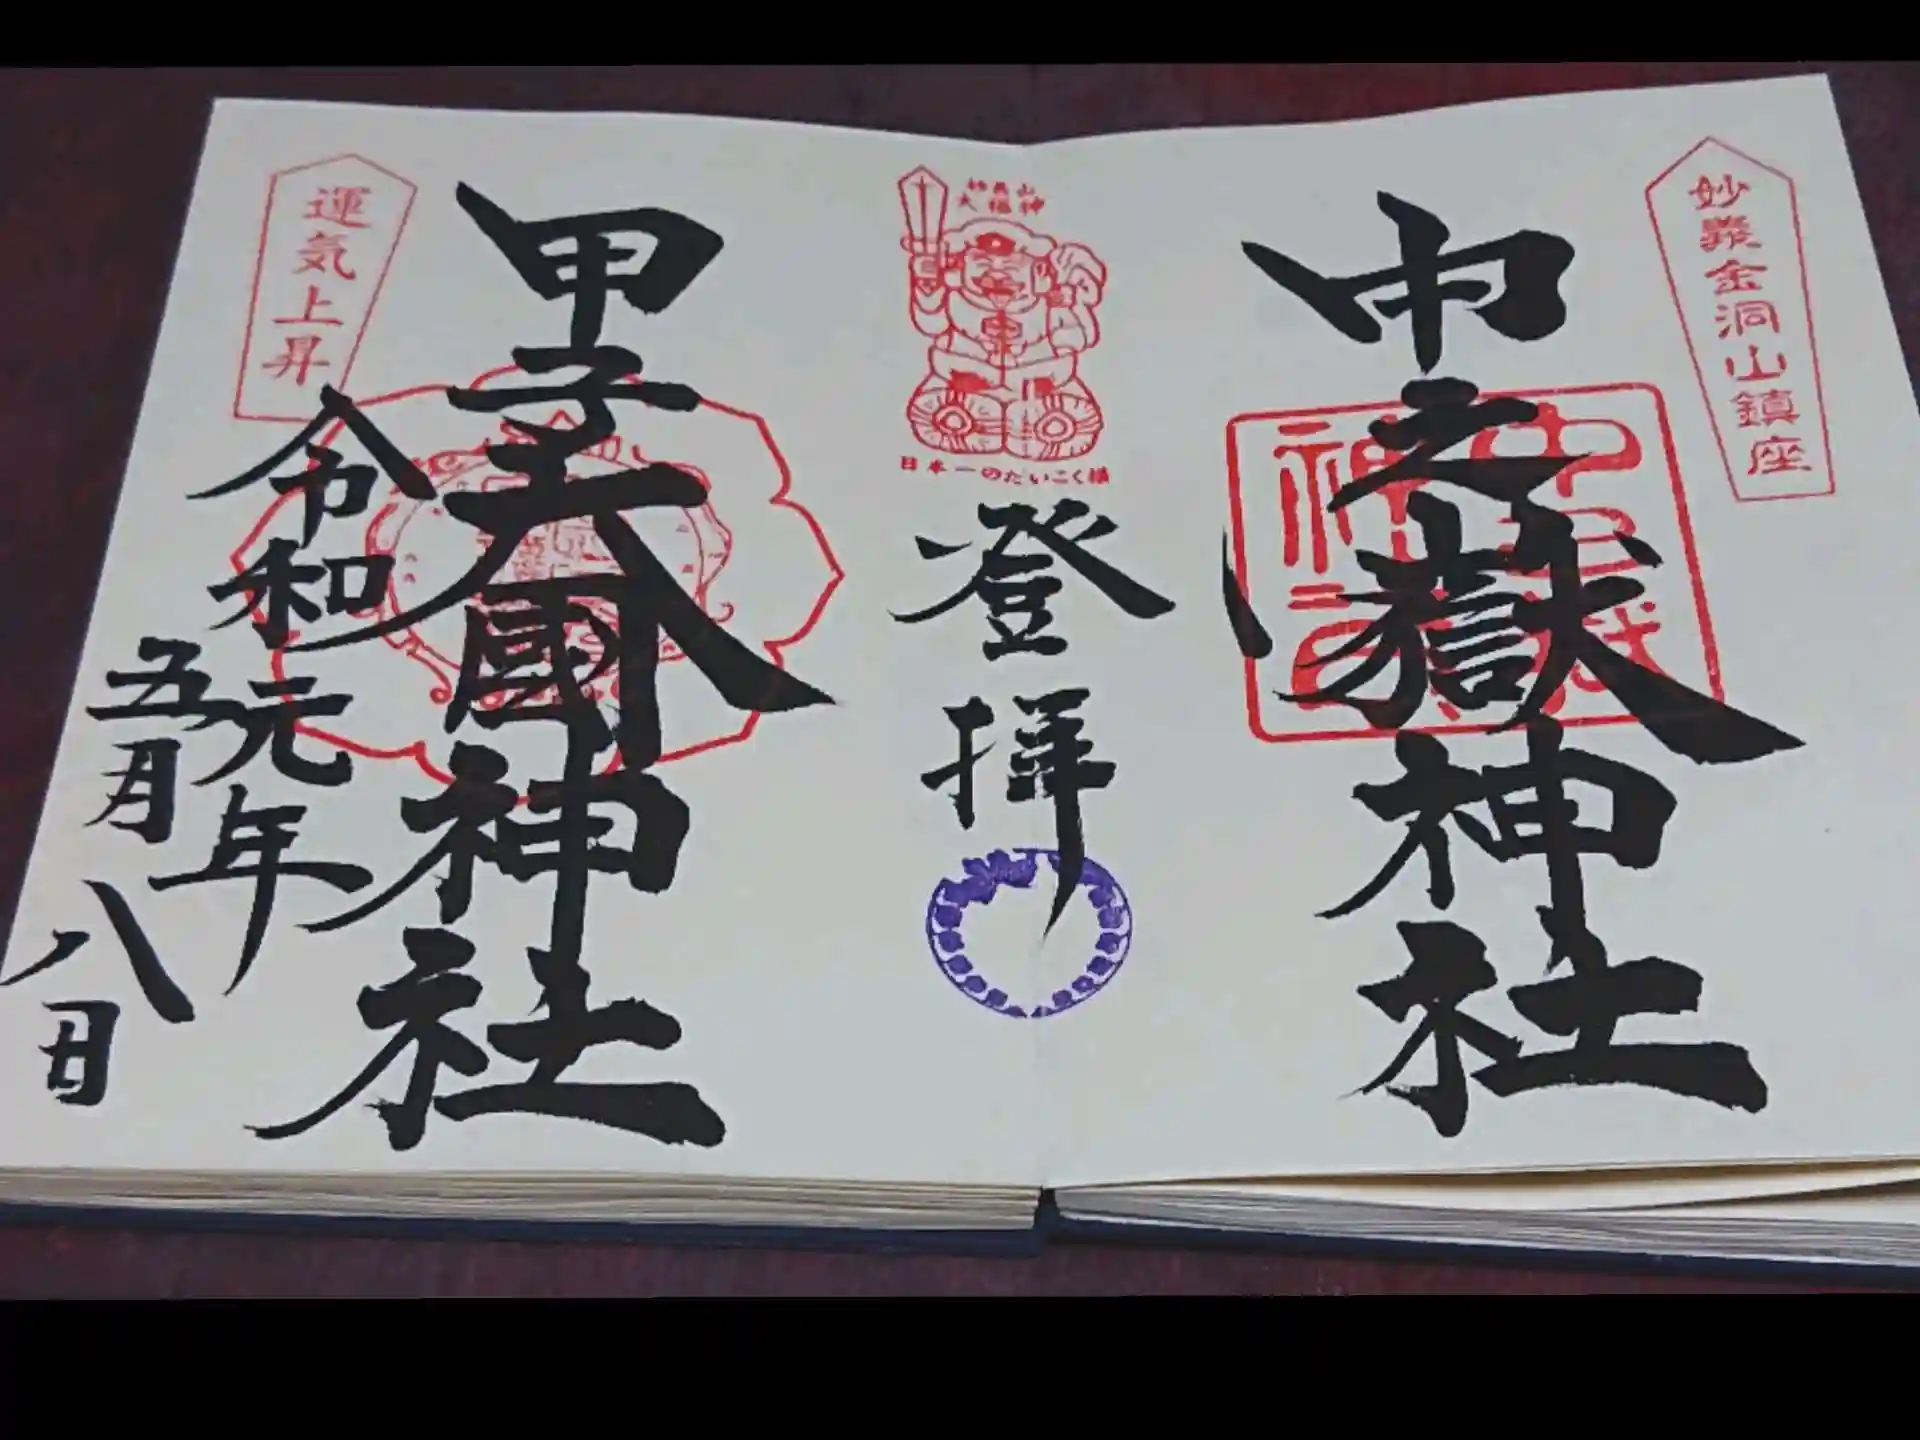 妙義金洞山鎮座
中之嶽神社
中之嶽
神社
妙義山
大福神
日本一のだいこく様
登拝
甲子大國神社
運気上昇
令和元年
五月八日